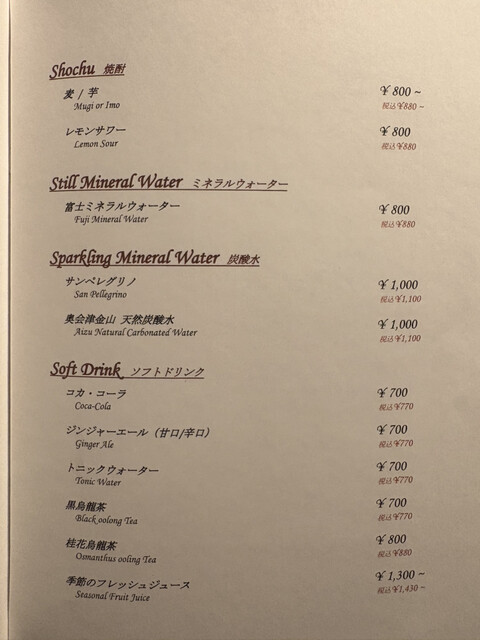 Shochu 焼酎
麦 / 芋 ￥800～
Mugi or Imo 税込￥880～
レモンサワー ￥800
Lemon Sour 税込￥880
Still Mineral Water ミネラルウォーター
富士ミネラルウォーター ￥800
Fuji Mineral Water 税込￥880
Sparkling Mineral Water 炭酸水
サンペレグリノ ￥1,000
San Pellegrino 税込￥1,100
奥会津金山 天然炭酸水 ￥1,000
Aizu Natural Carbonated Water 税込￥1,100
Soft Drink ソフトドリンク
コカ・コーラ ￥700
Coca-Cola 税込￥770
ジンジャーエール（甘口/辛口） ￥700
Ginger Ale 税込￥770
トニックウォーター ￥700
Tonic Water 税込￥770
黒烏龍茶 ￥700
Black oolong Tea 税込￥770
桂花烏龍茶 ￥800
Osmanthus ooling Tea 税込￥880
季節のフレッシュジュース ￥1,300～
Seasonal Fruit Juice 税込￥1,430～